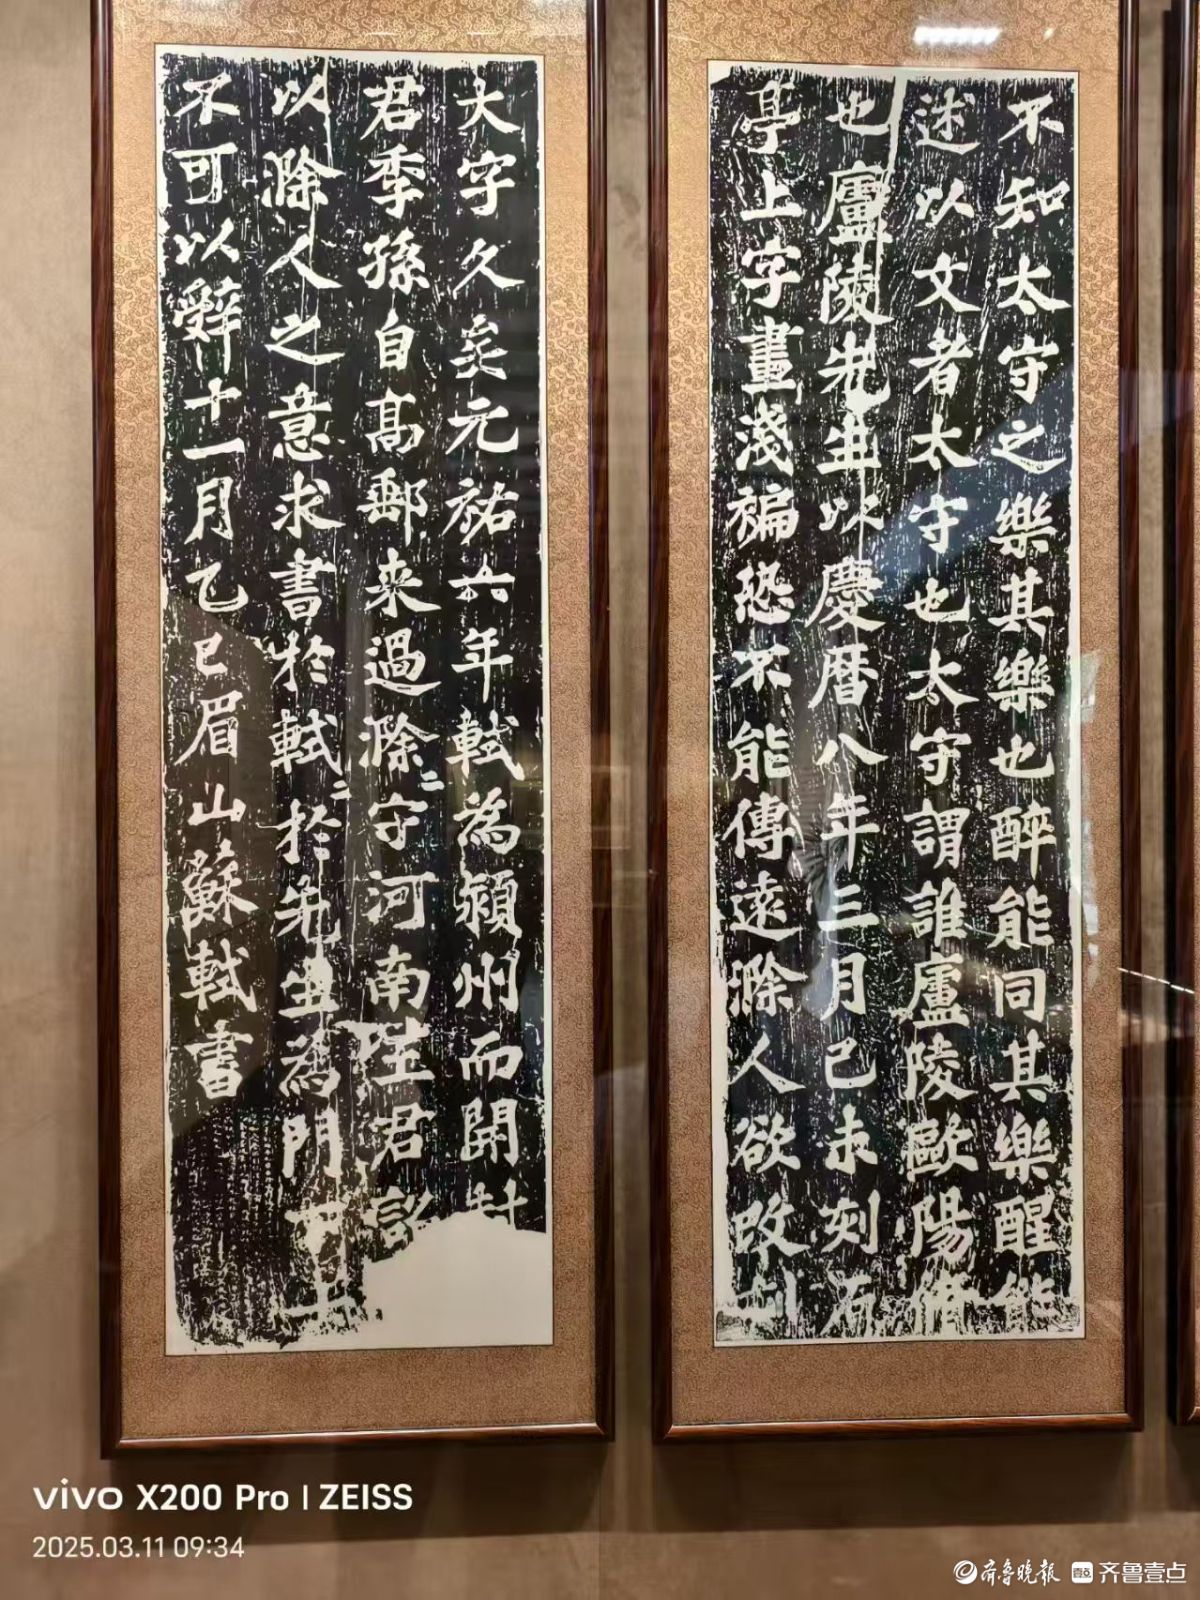 不知太守之樂其樂也醉能同其樂醒能
述以文者太守也太守謂誰廬陵歐陽脩
也廬陵先生以慶曆八年三月己未刻石
亭上字畫淺褊恐不能傳遠滁人欲改刻
大字久矣元祐六年軾為潁州而開封
君季孫自高郵來過滁二守河南王君詔
以滁人之意求書於軾二於先生為門下士
不可以辭十一月乙巳眉山蘇軾書
vivo X200 Pro | ZEISS
2025.03.11 09:34
齊魯晚報 壹点 齐鲁壹点